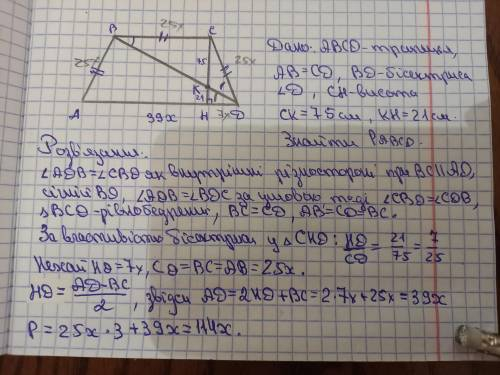 B 25x C
25x 75 25x
K
21
A 39x H 7x D
Дано: ABCD-трапеція,
AB=CD, BD-бісектриса
∠D, CH-висота
CK=75см, KH=21см.
Знайти P ABCD.
Розв'язання.
∠ADB=∠CBD як внутрішні різносторонні при BC||AD,
січній BD, ∠ADB=∠BDC за умовою, тоді ∠CBD=∠CDB,
△BCD-рівнобедрений, BC=CD, AB=CD=BC.
За властивістю бісектриси у △CHD: HD/CD = 21/75 = 7/25
Нехай HD=7x, CD=BC=AB=25x.
HD= AD-BC/2, звідси AD=2HD+BC=2·7x+25x=39x
P=25x·3+39x=114x.